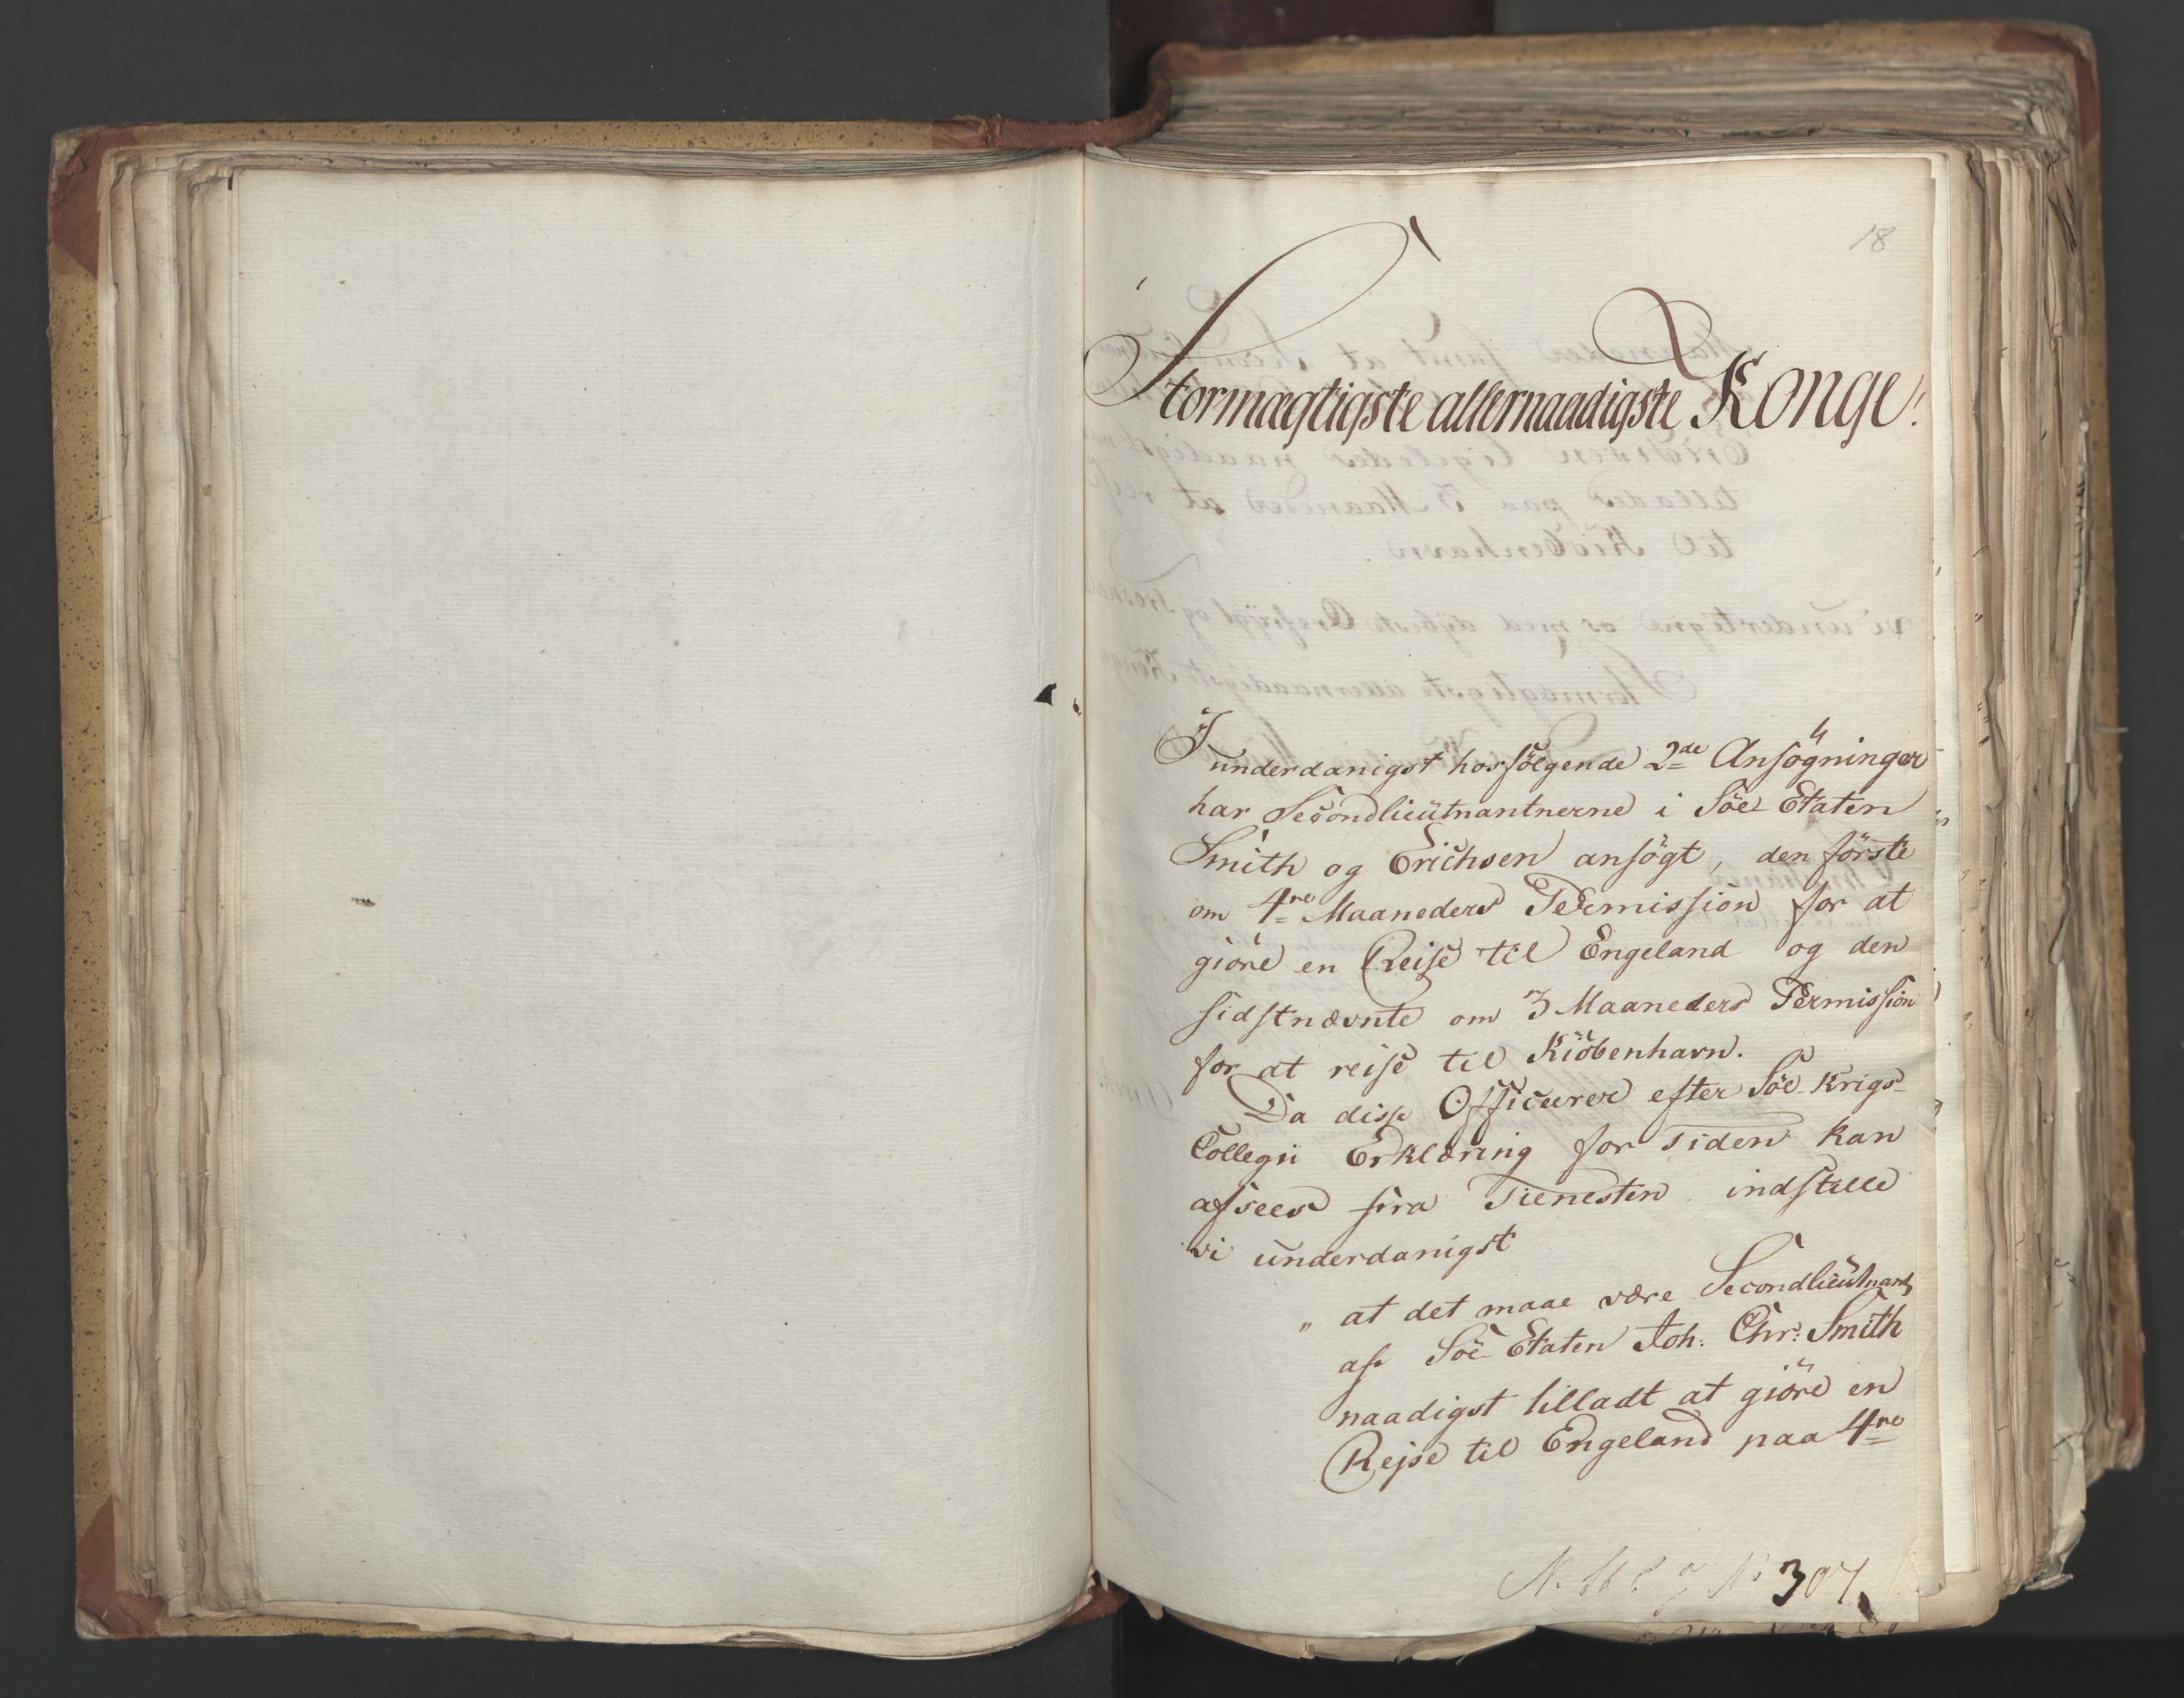 18
Stormægtigste allernaadigste Konge!
I underdanigst hosfölgende 2de Ansögninger
har Secondlieutnantnerne i Söe Etaten
Smith og Erichsen ansögt, den förste
om 4re Maaneders Permission for at
giöre en Reise til Engeland og den
sidstnævnte om 3 Maaneders Permission
for at reise til Kiöbenhavn.
Da disse Officerer efter Söe-Krigs-
Collegii Erklæring for Tiden kan
afsees fra Tienesten indstille
vi underdanigst
„ at det maae være Secondlieutnant
af Söe-Etaten Joh: Chr: Smith
naadigst tilladt at giöre en
Rejse til Engeland paa 4re
307